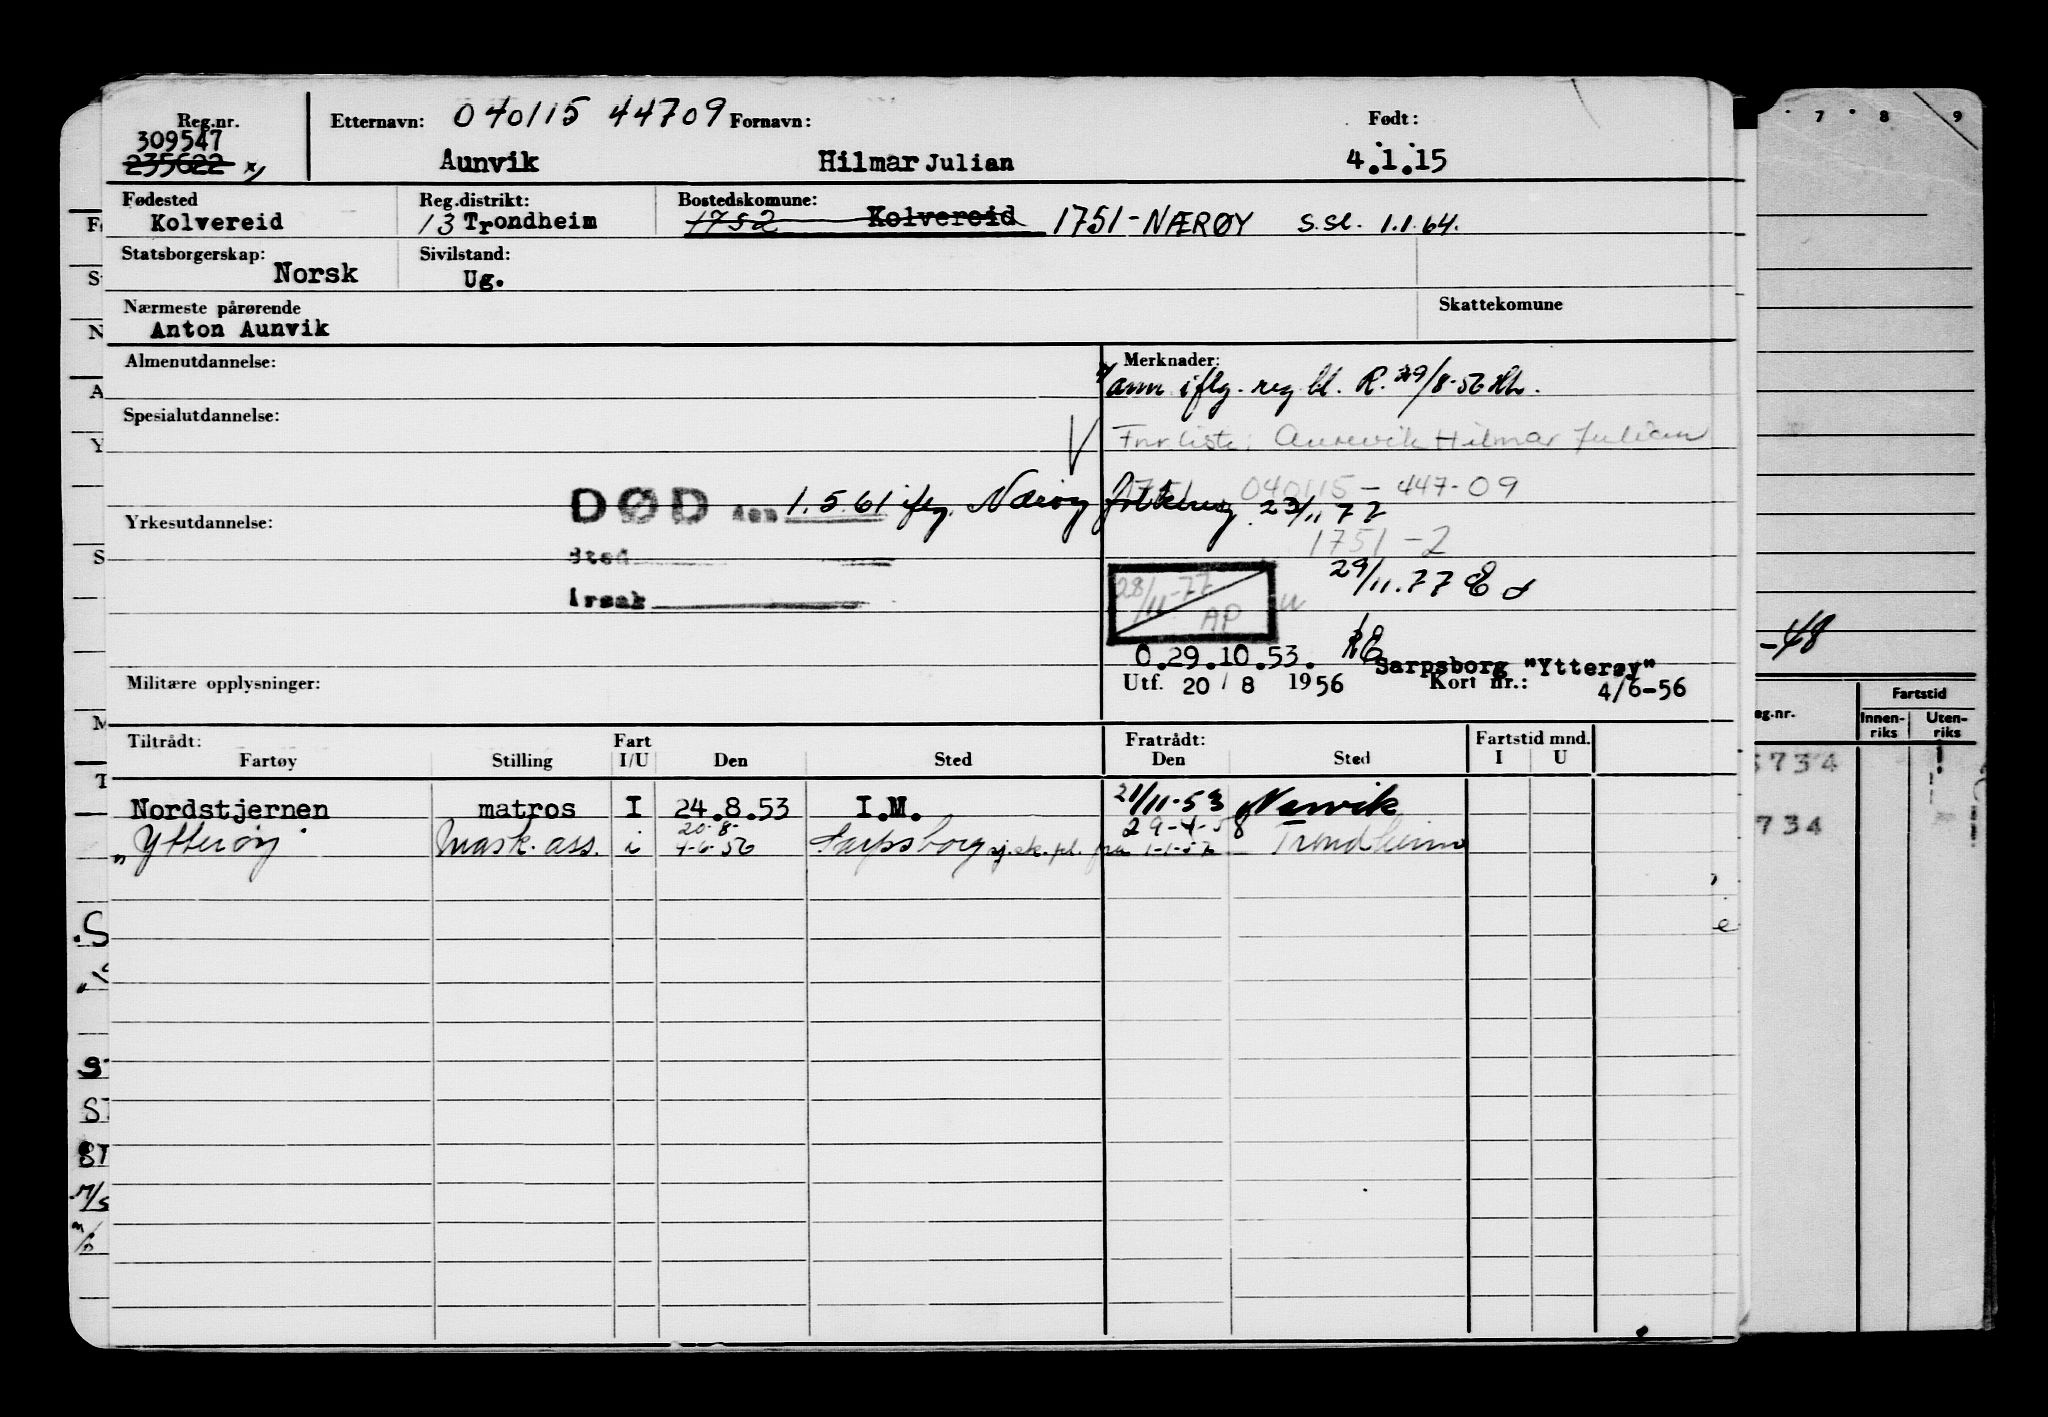 Reg.nr. Etternavn: 040115 44709 Fornavn: Født:
309547
235622 x) Aunvik Hilmar Julian 4.1.15
Fødested Reg.distrikt: Bostedskomune:
Kolvereid 13 Trondheim 1752 Kolvereid 1751-NÆRØY S.Sl. 1.1.64.
Statsborgerskap: Sivilstand:
Norsk Ug.
Nærmeste pårørende Skattekomune
Anton Aunvik
Almenutdannelse: Merknader:
x) ann. iflg. reg.bl. R. 29/8-56
Spesialutdannelse:
Fnr.liste: Hilmar Julian
1751 040115-447-09
DØD den 1.5.61 iflg. Nærøy folkereg. 23/11 77
Yrkesutdannelse:
1751-2
Sted
29/11.77
28/11-77
AP
Årsak
0.29.10.53. Sarpsborg "Ytterøy"
Militære opplysninger: Utf. 20 / 8 1956 Kort nr.: 4/6-56
Tiltrådt: Fart Fratrådt: Fartstid mnd.
Fartøy Stilling I/U Den Sted Den Sted I U
Nordstjernen matros I 24.8.53 I.M. 21/11-53 Narvik
20-8- 29-4-58
"Ytterøy" mask.ass. i 4-6-56 Sarpsborg fra Trondheim
7 8 9
-48
eg.nr. Fartstid
Innen-riks Uten-riks
734
734